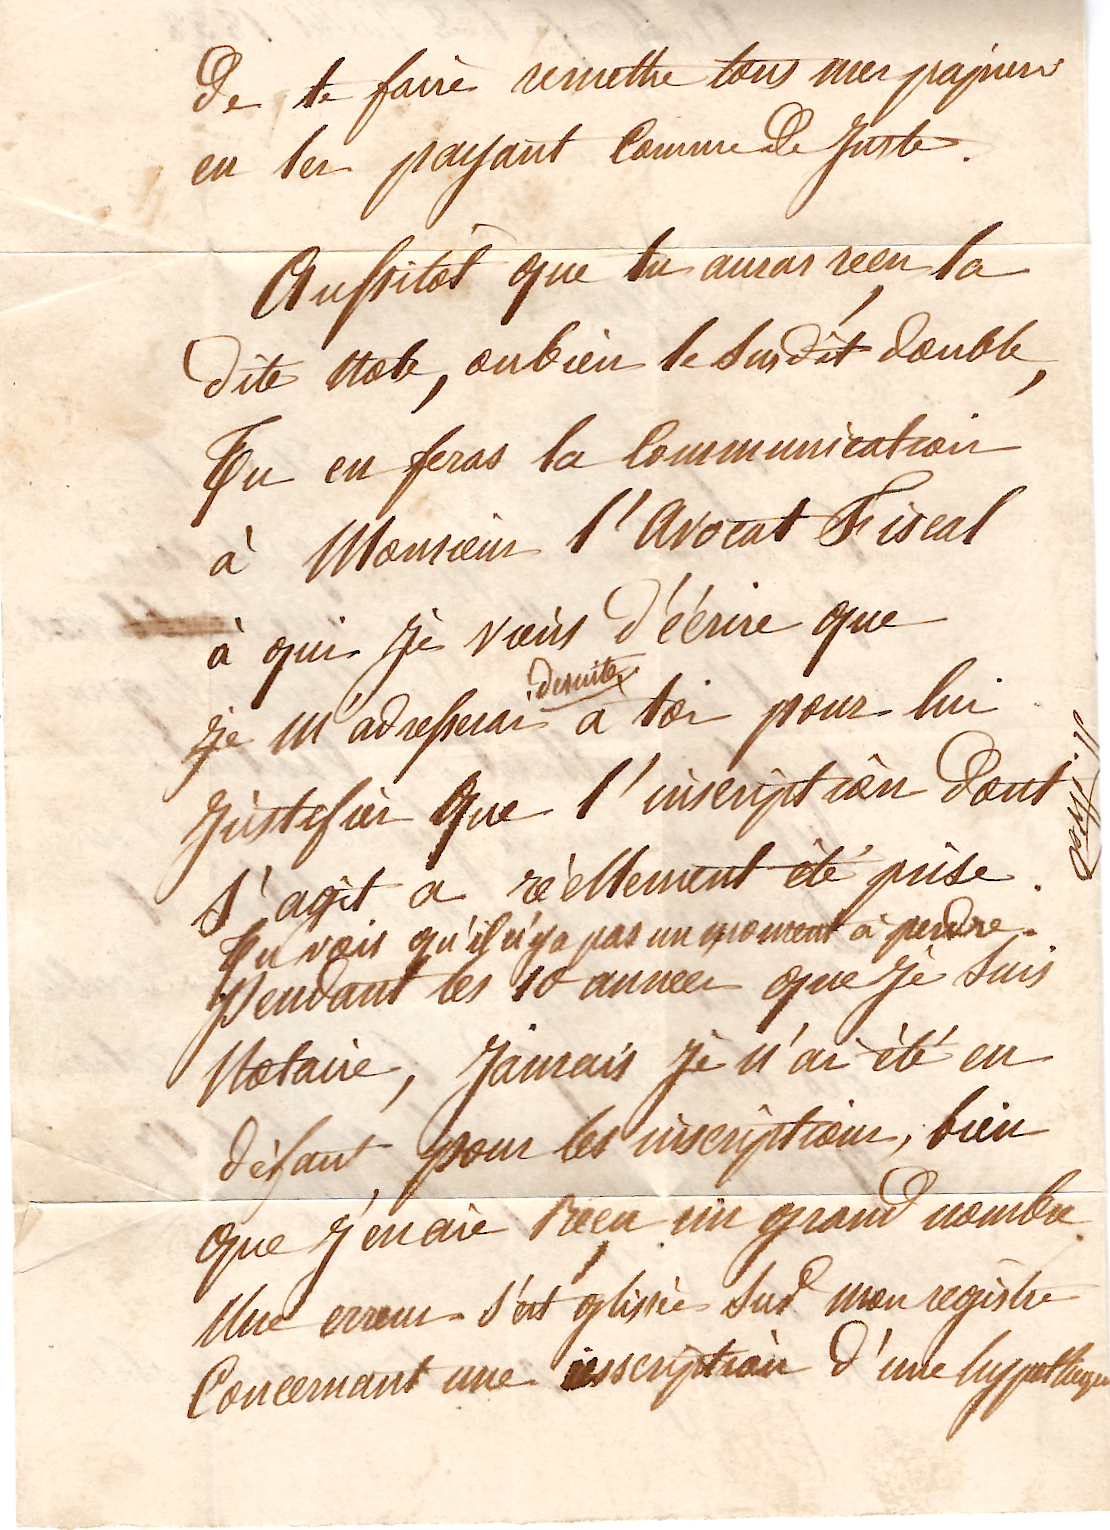 De te faire remettre tous mes papiers
en les payant Comme De Juste.
Aussitôt que tu auras reçu la
dite Note, oubien le Susdit double,
Tu en feras la Communication
à Monsieur l'Avocat Fiscal
à qui Je viens d'écrire que
Je m'adresserai desuite à toi pour lui
Justifier Que l'inscription Dont
S'agit a réellement été prise.
Tu vois qu'il n'y a pas un moment à perdre.
Pendant les 10 années que Je Suis
Notaire, Jamais Je n'ai été en
défaut pour les inscriptions, bien
que J'en aie Reçu un grand nombre.
Une erreur S'est glissée Sur mon registre
Concernant une inscription d'une hypothèque